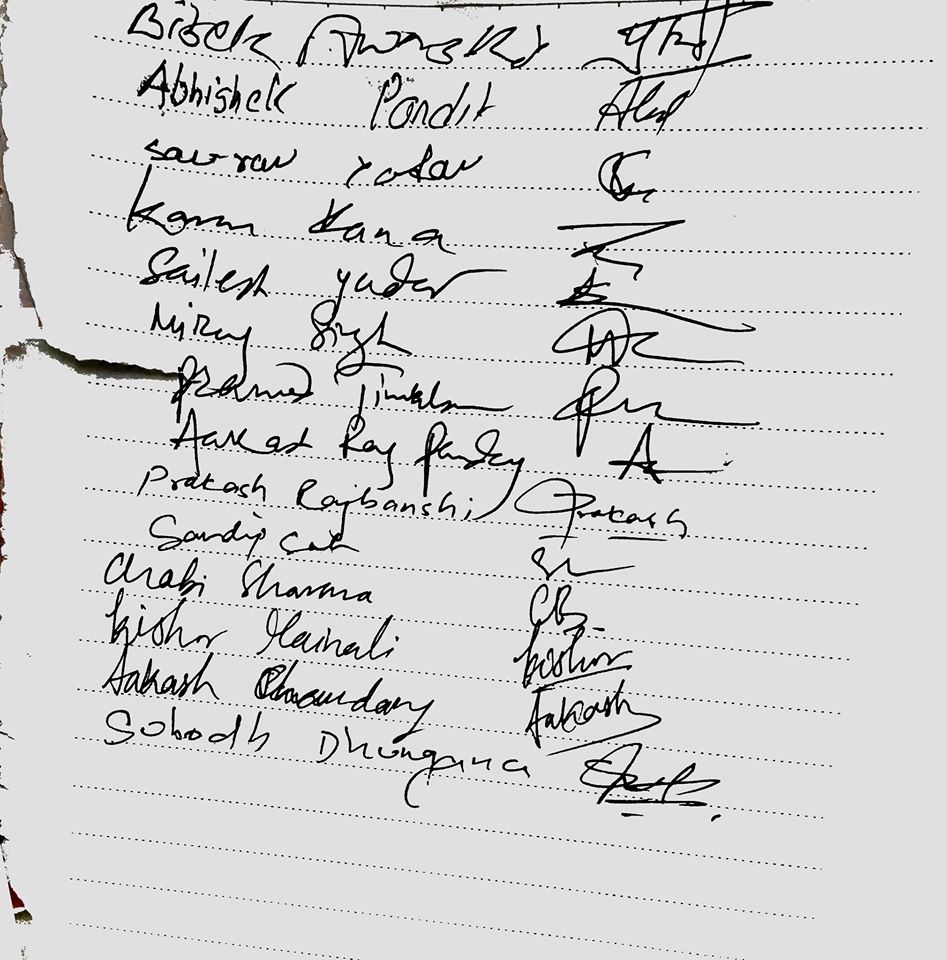 Bibek Awasthi
Abhishek Pandit Abhi
Saurav Yadav
Karan Rana
Sailesh yadav
Niraj Singh
Pramod Timalsina
Aakash Raj Pandey A
Prakash Rajbanshi Prakash
Sandip Sah
Chabi Sharma CB
Kishor Mainali Kishor
Aakash Chaudary Aakash
Subodh Dhungana